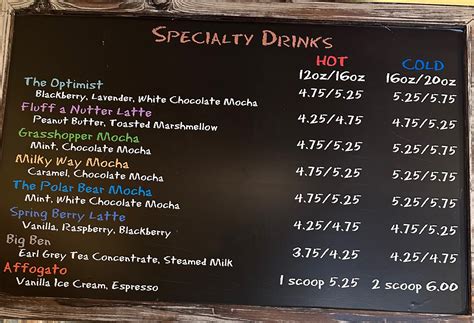 SPECIALTY DRINKS
HOT COLD
12oz/16oz 16oz/20oz
The Optimist
Blackberry, Lavender, White Chocolate Mocha 4.75/5.25 5.25/5.75
Fluff a Nutter Latte
Peanut Butter, Toasted Marshmellow 4.25/4.75 4.75/5.25
Grasshopper Mocha
Mint, Chocolate Mocha 4.75/5.25 5.25/5.75
Milky Way Mocha
Caramel, Chocolate Mocha 4.75/5.25 5.25/5.75
The Polar Bear Mocha
Mint, White Chocolate Mocha 4.75/5.25 5.25/5.75
Spring Berry Latte
Vanilla, Raspberry, Blackberry 4.25/4.75 4.75/5.25
Big Ben
Earl Grey Tea Concentrate, Steamed Milk 3.75/4.25 4.25/4.75
Affogato
Vanilla Ice Cream, Espresso 1 scoop 5.25 2 scoop 6.00